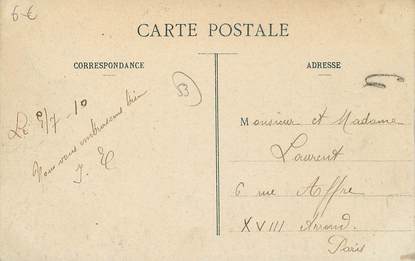 6€
CARTE POSTALE
CORRESPONDANCE
ADRESSE
53
Le 9/7-10
Nous vous embrassons bien
J. E
Monsieur et Madame
Laurent
6 rue Affre
XVIII Arrond.
Paris